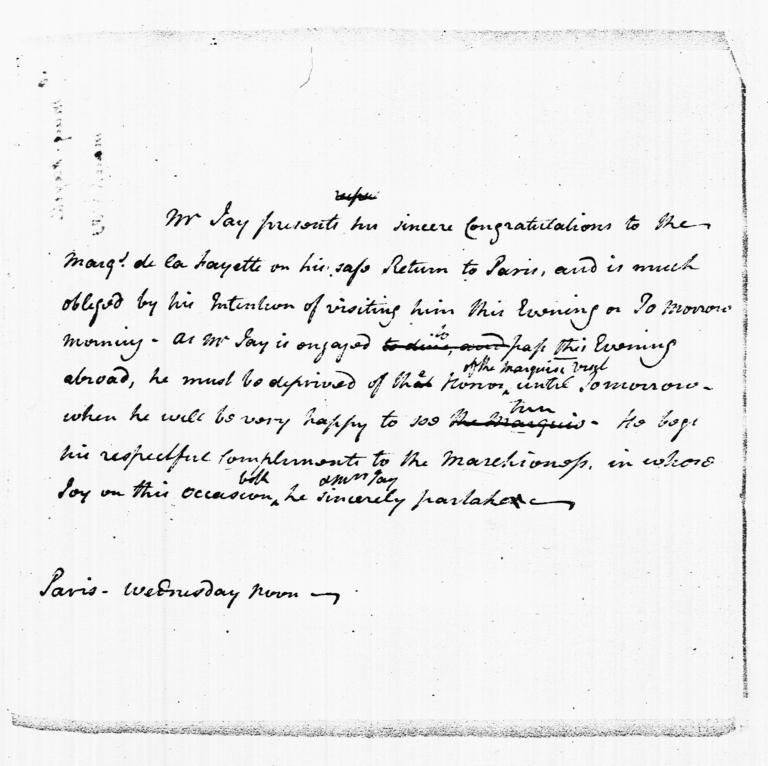 Mr Jay presents his sincere Congratulations to the
Marqs. de la Fayette on his safe Return to Paris, and is much
obliged by his Intention of visiting him this Evening or To Morrow
morning - As Mr Jay is engaged to dine, and to pass this Evening
abroad, he must be deprived of the Honor of the Marquiss visit until Tomorrow -
when he will be very happy to see the Marquis him - He begs
his respectful Compliments to the Marchioness, in whose
Joy on this occasion both he & Mrs Jay sincerely partake
Paris - Wednesday Noon